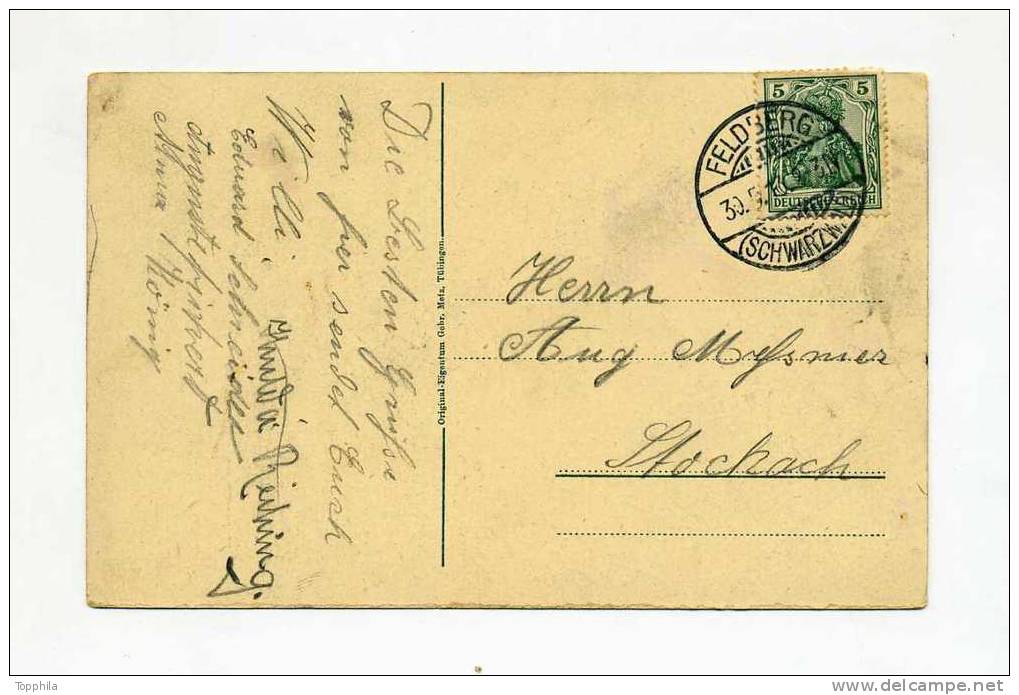 5 5
DEUTSCHES REICH
FELDBERG
(SCHWARZW
Herrn
Aug Messmer
Stockach
Original-Eigentum Gebr. Metz, Tübingen.
Die besten Grüße
von hier sendet Euch
Willi
Eduard Schneider
Anna König
Topphila
delcampe.net